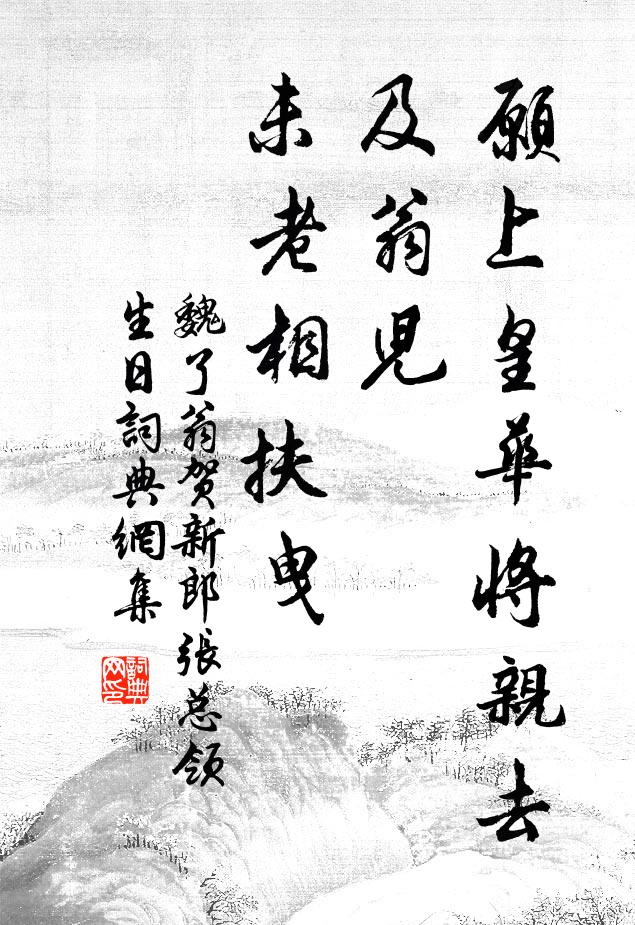 願上皇華將親去
及翁兒
未老相扶曳
魏了翁賀新郎張总領
生日詞典網集
詞典网印